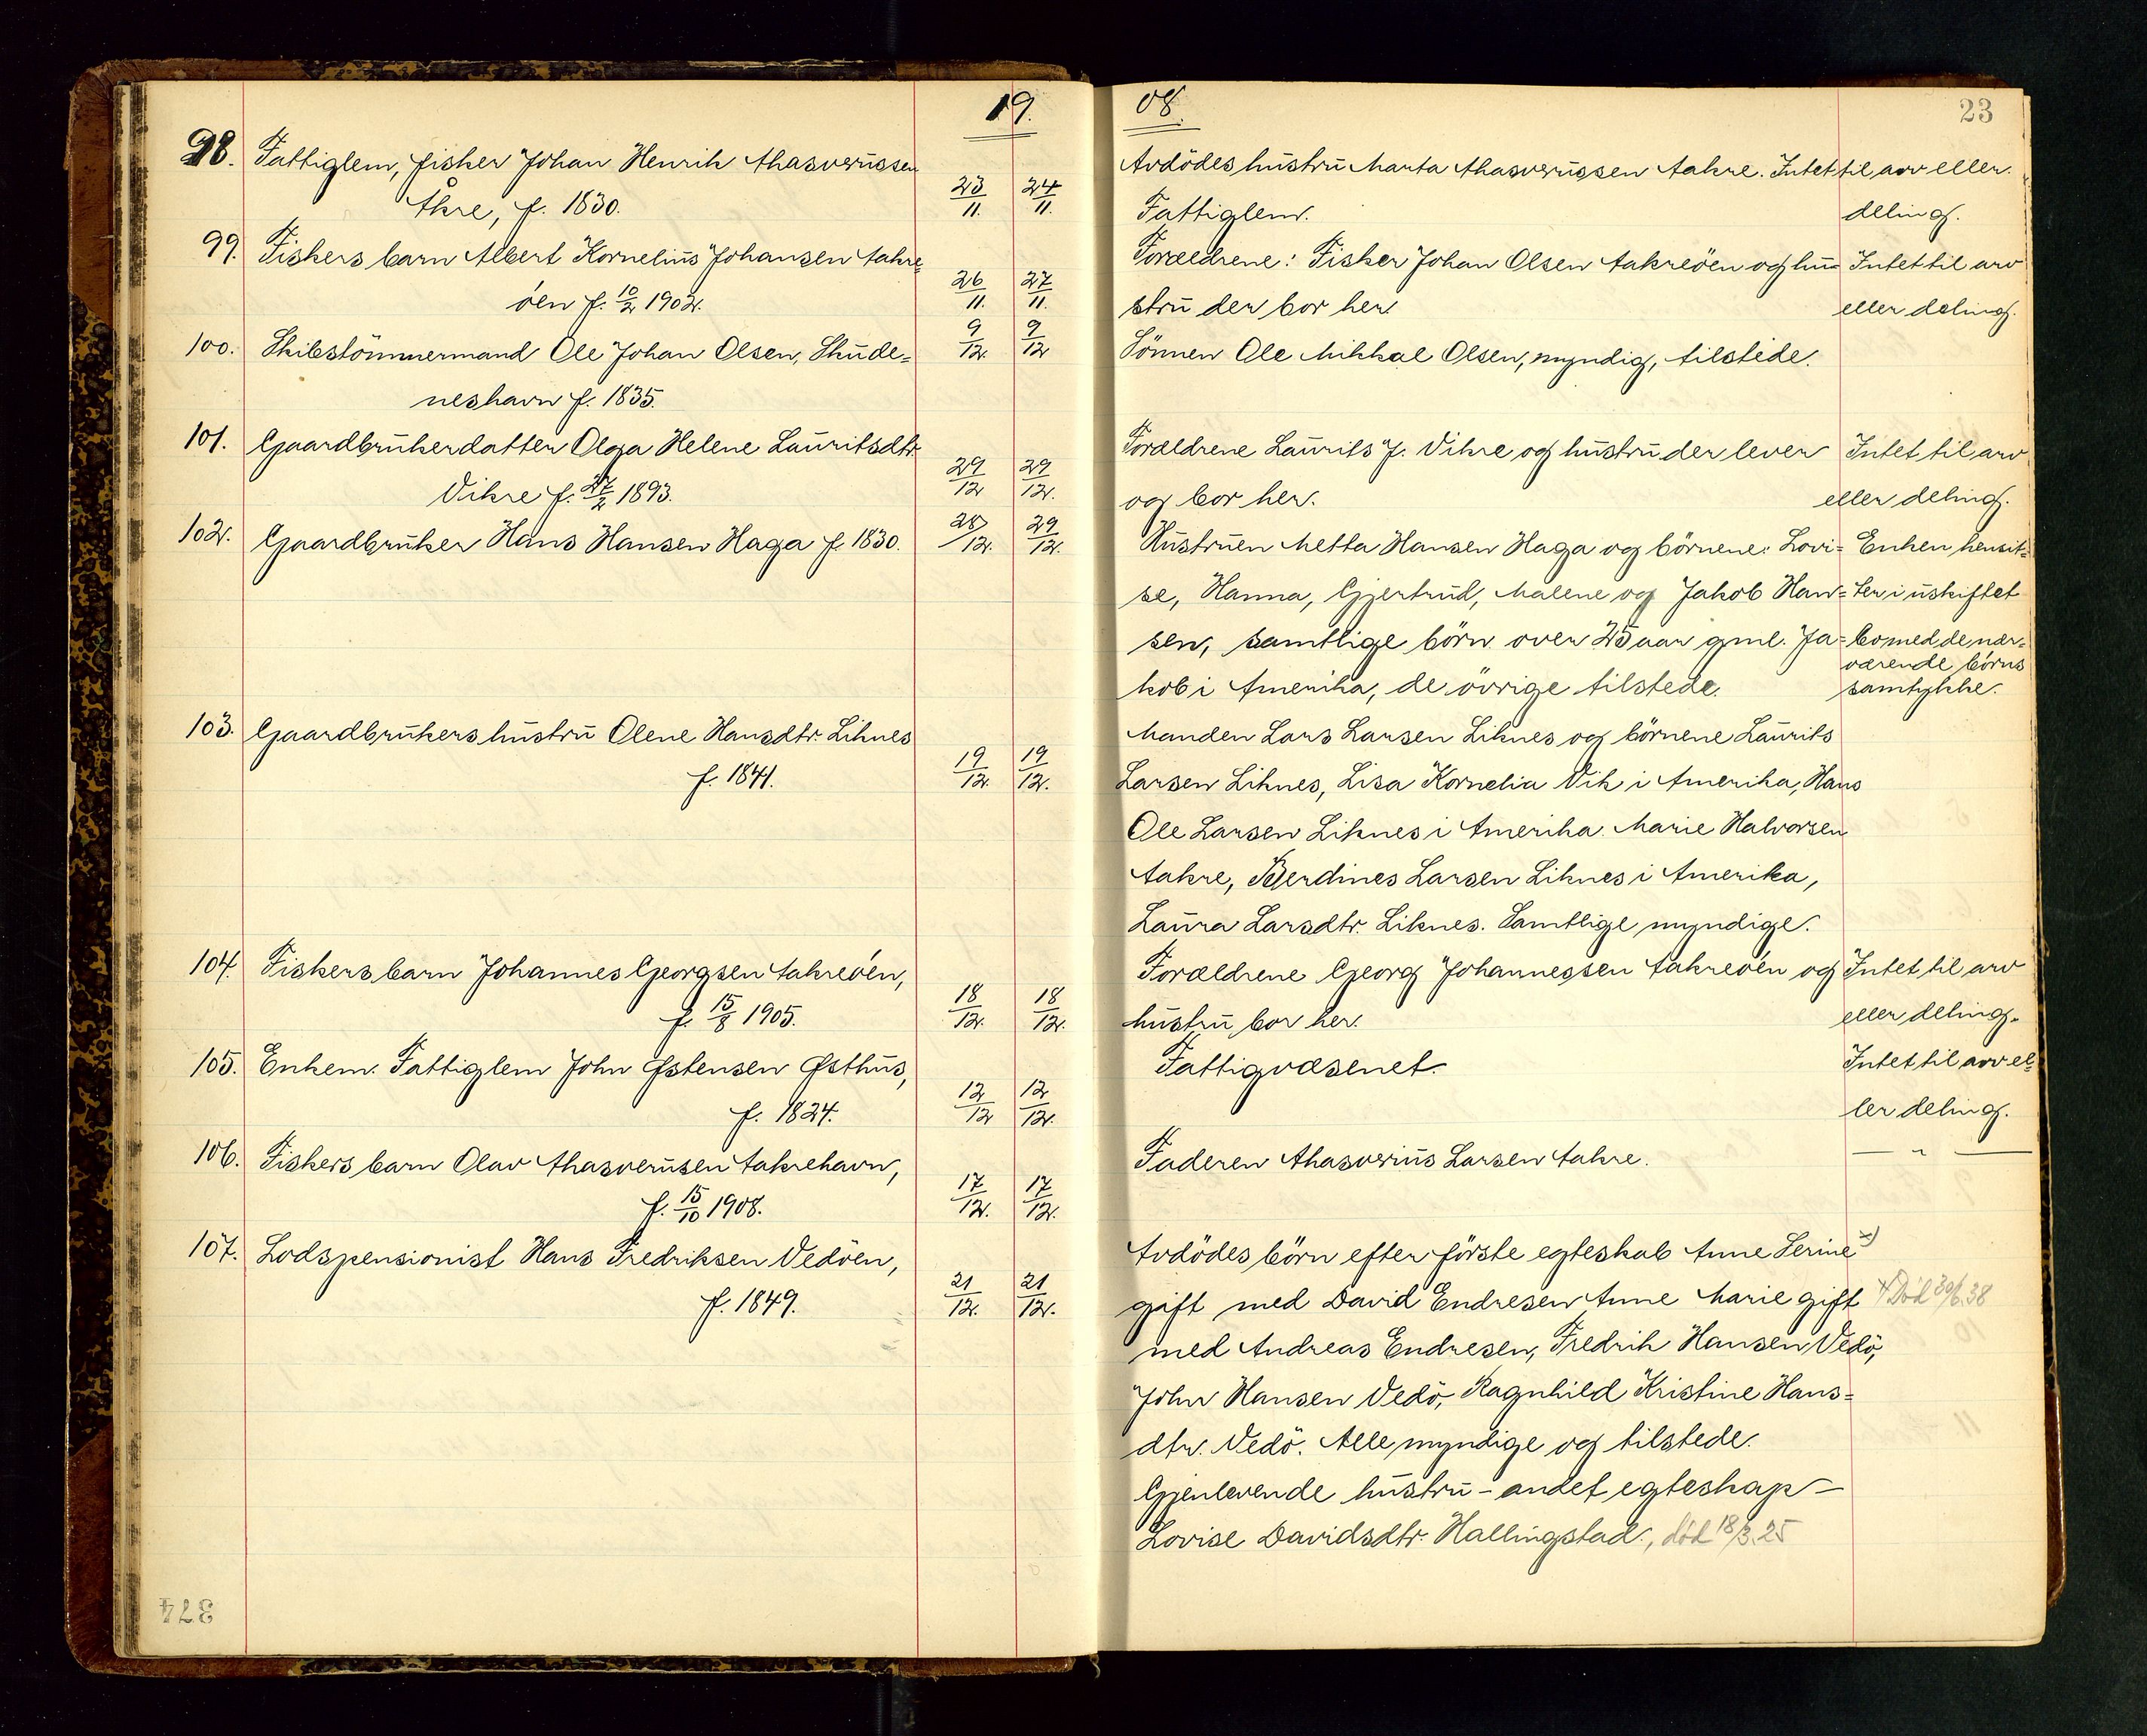 19.
98. Fattiglem, fisker Johan Henrik Ahasverussen
Åkre, f. 1830.
23/11. 24/11.
99. Fiskers barn Albert Kornelius Johansen Aakre-
öen f. 10/2 1902.
26/11. 27/11.
100. Skibstömmermand Ole Johan Olsen, Skude-
neshavn f. 1835.
9/12. 9/12
101. Gaardbrukerdatter Olga Helene Lauritsdtr.
Vikre f. 27/2 1893.
29/12 29/12.
102. Gaardbruker Hans Hansen Haga f. 1830.
28/12. 29/12.
103. Gaardbrukers hustru Olene Hansdtr. Liknes
f. 1841.
19/12. 19/12.
104. Fiskers barn Johannes Georgsen Aakreöen,
f. 15/8 1905.
18/12. 18/12.
105. Enkem. Fattiglem John Østensen Østhus,
f. 1824.
12/12 12/12.
106. Fiskers barn Olav Ahasverusen Aakrehavn,
f. 15/10 1908.
17/12. 17/12.
107. Lodspensionist Hans Fredriksen Vedöen,
f. 1849.
21/12. 21/12.
374
08.
23
Avdödes hustru Marta Ahasverussen Aakre. Intet til arv eller
Fattiglem. deling.
Forældrene: Fisker Johan Olsen Aakreöen og hu- Intet til arv
stru der bor her. eller deling.
Sönnen Ole Mikkal Olsen, myndig, tilstede.
Forældrene Laurits J. Vikre og hustru der lever Intet til arv
og bor her. eller deling.
Hustruen Metta Hansen Haga og börnene: Lovi- Enken hensit-
se, Hanna, Gjertrud, Malene og Jakob Han- ter i uskiftet
sen, samtlige börn over 25 aar gml. Ja- bo med de nær-
værende börns
kob i Amerika, de övrige tilstede. samtykke.
Manden Lars Larsen Liknes og börnene Laurits
Larsen Liknes, Lisa Kornelia Vik i Amerika, Hans
Ole Larsen Liknes i Amerika. Marie Halvorsen
Aakre, Berdines Larsen Liknes i Amerika,
Laura Larsdtr. Liknes. Samtlige myndige.
Forældrene Georg Johannessen Aakreöen og Intet til arv
hustru bor her. eller deling.
Fattigvæsenet. Intet til arv el-
ler deling.
Faderen Ahasverius Larsen Aakre. — " —
Avdödes börn efter förste egteskab Anne Serine x)
gift med David Endresen, Anne Marie gift x Död 30/6.38
med Andreas Endresen, Fredrik Hansen Vedö,
John Hansen Vedö, Ragnhild Kristine Hans-
dtr. Vedö. Alle myndige og tilstede.
Gjenlevende hustru - andet egteskap -
Lovise Davidsdtr. Hallingstad., död 18/3.25